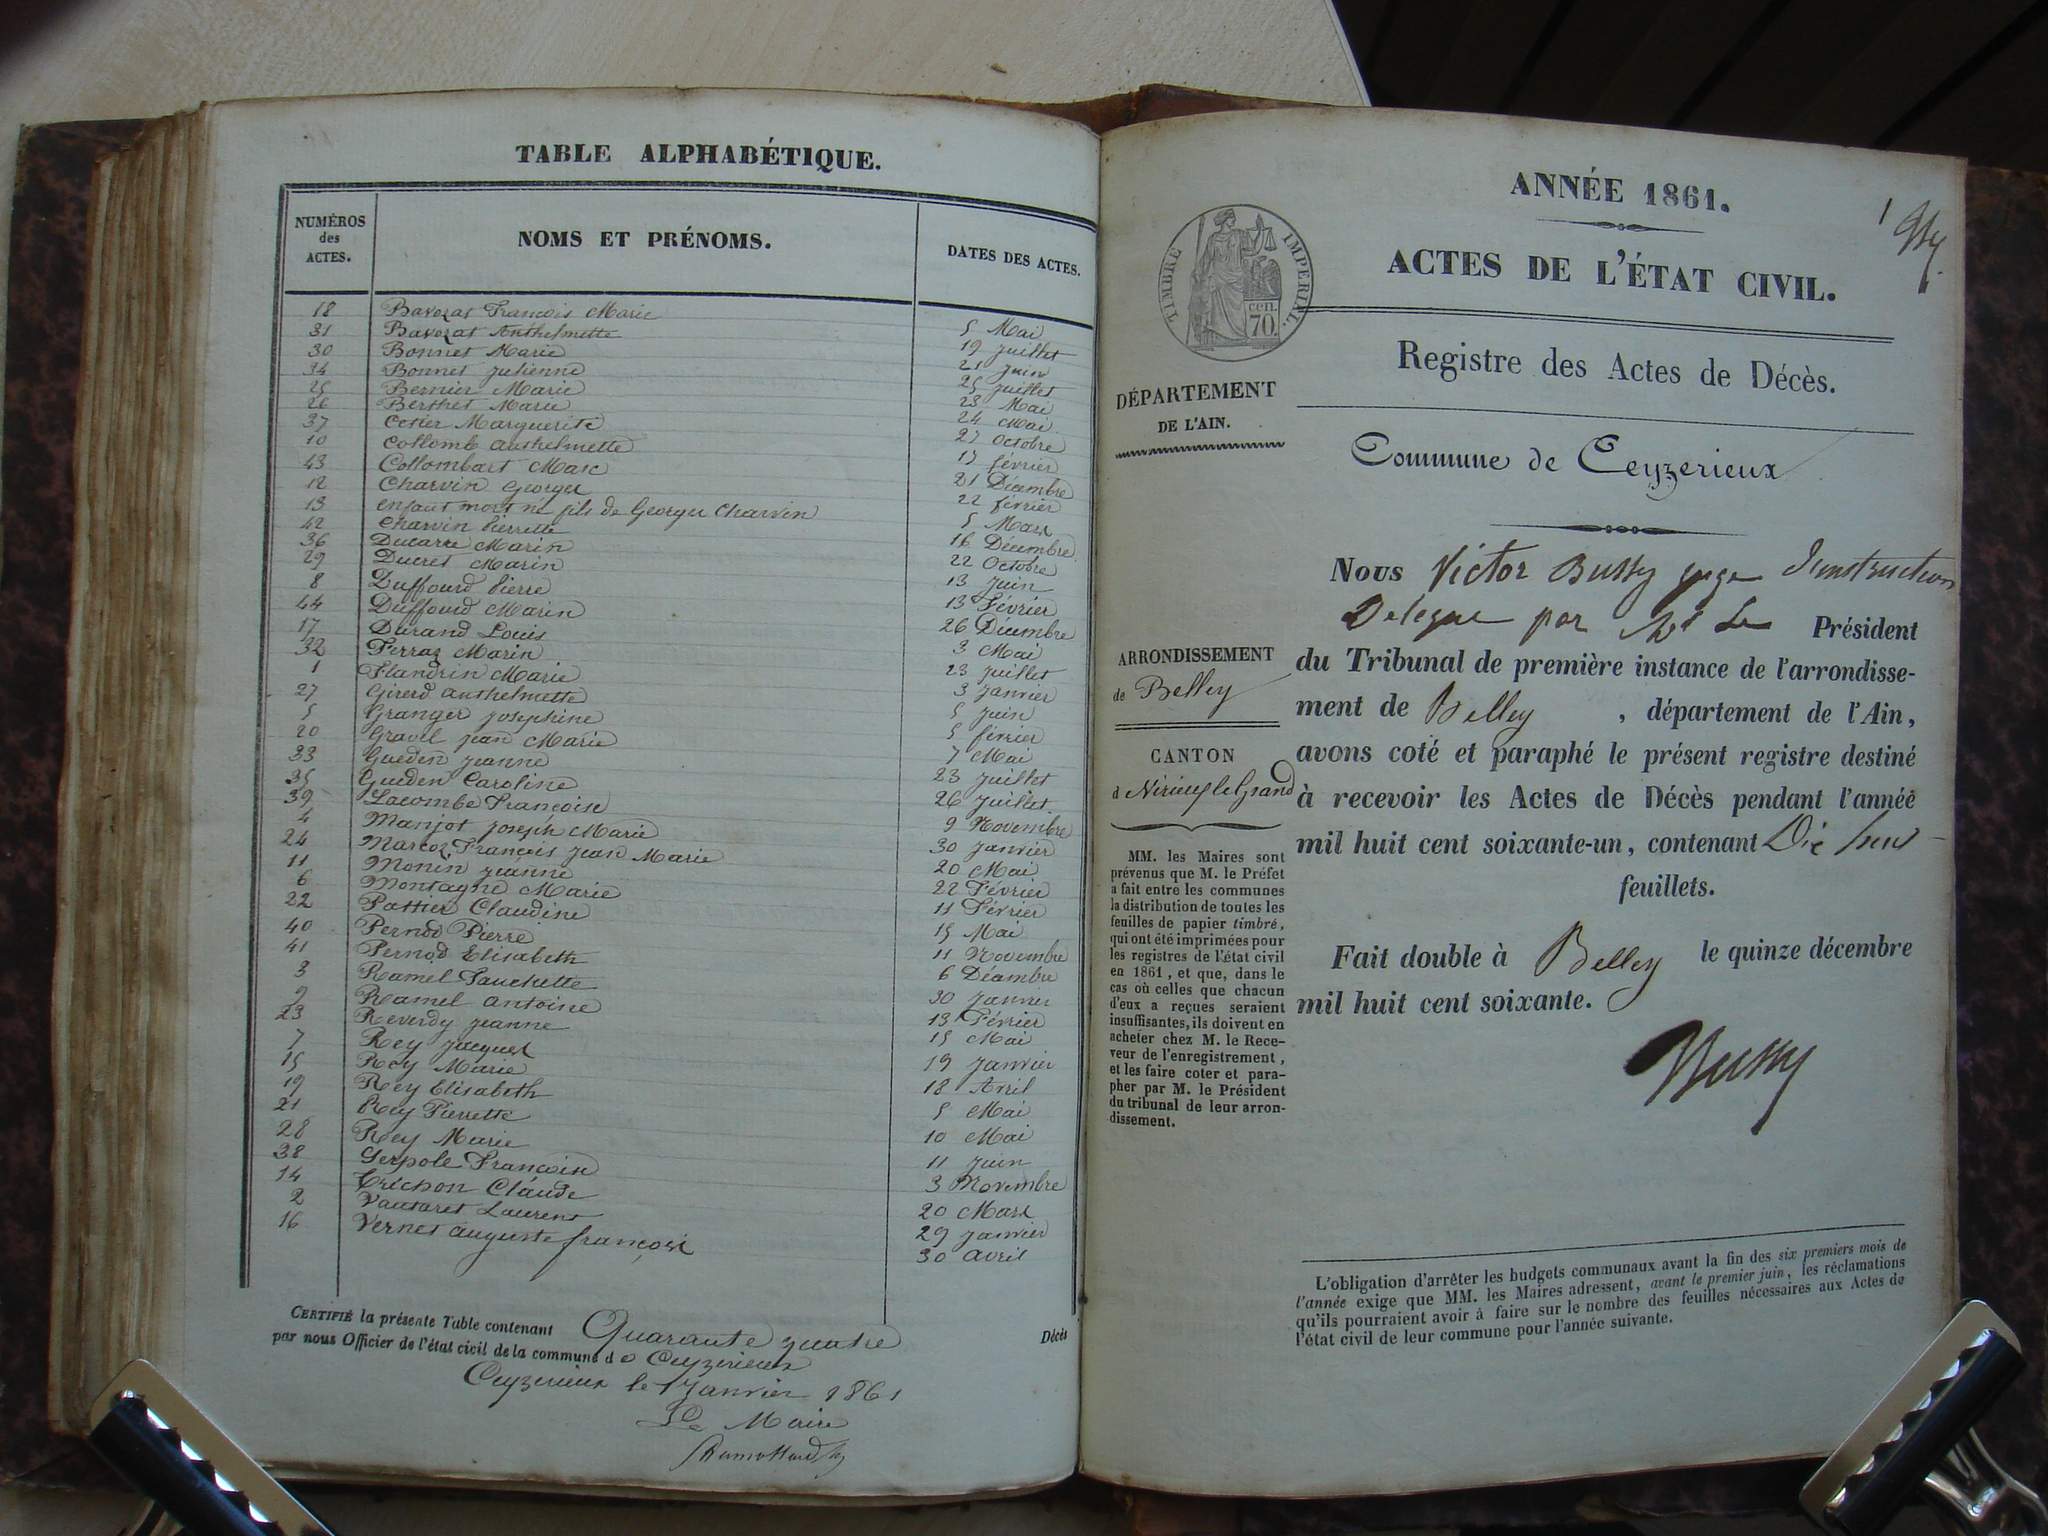 TABLE ALPHABÉTIQUE.
NUMÉROS des ACTES. NOMS ET PRÉNOMS. DATES DES ACTES.
18 Bavozat François Marie 5 Mai
31 Bavozat Anthelmette 19 juillet
30 Bonnet Marie 21 juin
34 Bonnet julienne 25 juillet
25 Bernier Marie 23 Mai
26 Berthet Marie 24 Mai
37 Cotier Marguerite 27 Octobre
10 Collomb anthelmette 17 février
43 Collombart Marc 21 Décembre
12 Charvin Georges 22 février
13 enfant mort né fils de Georges Charvin 5 Mars
42 Charvin Pierrette 16 Décembre
36 Ducarre Marin 22 Octobre
29 Ducret Marin 13 juin
8 Duffourd Pierre 13 Février
44 Duffourd Marin 26 Décembre
17 Durand Louis 3 Mai
32 Ferraz Marin 23 juillet
1 Flandrin Marie 3 janvier
27 Girerd anthelmette 5 juin
5 Granger josephine 5 février
20 Gravel jean Marie 7 Mai
33 Gueden jeanne 23 juillet
35 Gueden Caroline 26 juillet
39 Lacombe Françoise 9 Novembre
4 Manjot joseph Marie 30 janvier
24 Marcoz François jean Marie 20 Mai
11 Monin jeanne 22 Février
6 Montagne Marie 11 Février
22 Pattier Claudine 15 Mai
40 Pernod Pierre 11 Novembre
41 Pernod Elisabeth 6 Décembre
3 Ramel Fanchette 30 janvier
9 Ramel antoine 13 Février
23 Reverdy jeanne 15 Mai
7 Rey jacques 19 janvier
15 Rey Marie 18 Avril
19 Rey Elisabeth 5 Mai
21 Rey Pierrette 10 Mai
28 Rey Marie 11 juin
38 Serpole François 3 Novembre
14 Trichon Claude 20 Mars
2 Vautaret Laurent 29 janvier
16 Vernet auguste françois 30 avril
CERTIFIÉ la présente Table contenant Quarante quatre Décès
par nous Officier de l'état civil de la commune de Ceyzerieux
Ceyzerieux le 1 janvier 1861
Le Maire
ANNÉE 1861.
1
TIMBRE IMPERIAL.
cen. 70.
ACTES DE L'ÉTAT CIVIL.
Registre des Actes de Décès.
DÉPARTEMENT
DE L'AIN.
Commune de Ceyzerieux
ARRONDISSEMENT
de Belley
CANTON
d Virieu le Grand
MM. les Maires sont
prévenus que M. le Préfet
a fait entre les communes
la distribution de toutes les
feuilles de papier timbré,
qui ont été imprimées pour
les registres de l'état civil
en 1861, et que, dans le
cas où celles que chacun
d'eux a reçues seraient
insuffisantes, ils doivent en
acheter chez M. le Rece-
veur de l'enregistrement,
et les faire coter et para-
pher par M. le Président
du tribunal de leur arron-
dissement.
Nous Victor Bussy juge d'instruction
Delegué par Mr Le Président
du Tribunal de première instance de l'arrondisse-
ment de Belley, département de l'Ain,
avons coté et paraphé le présent registre destiné
à recevoir les Actes de Décès pendant l'année
mil huit cent soixante-un, contenant Dix huit
feuillets.
Fait double à Belley le quinze décembre
mil huit cent soixante.
Bussy
L'obligation d'arrêter les budgets communaux avant la fin des six premiers mois de
l'année exige que MM. les Maires adressent, avant le premier juin, les réclamations
qu'ils pourraient avoir à faire sur le nombre des feuilles nécessaires aux Actes de
l'état civil de leur commune pour l'année suivante.